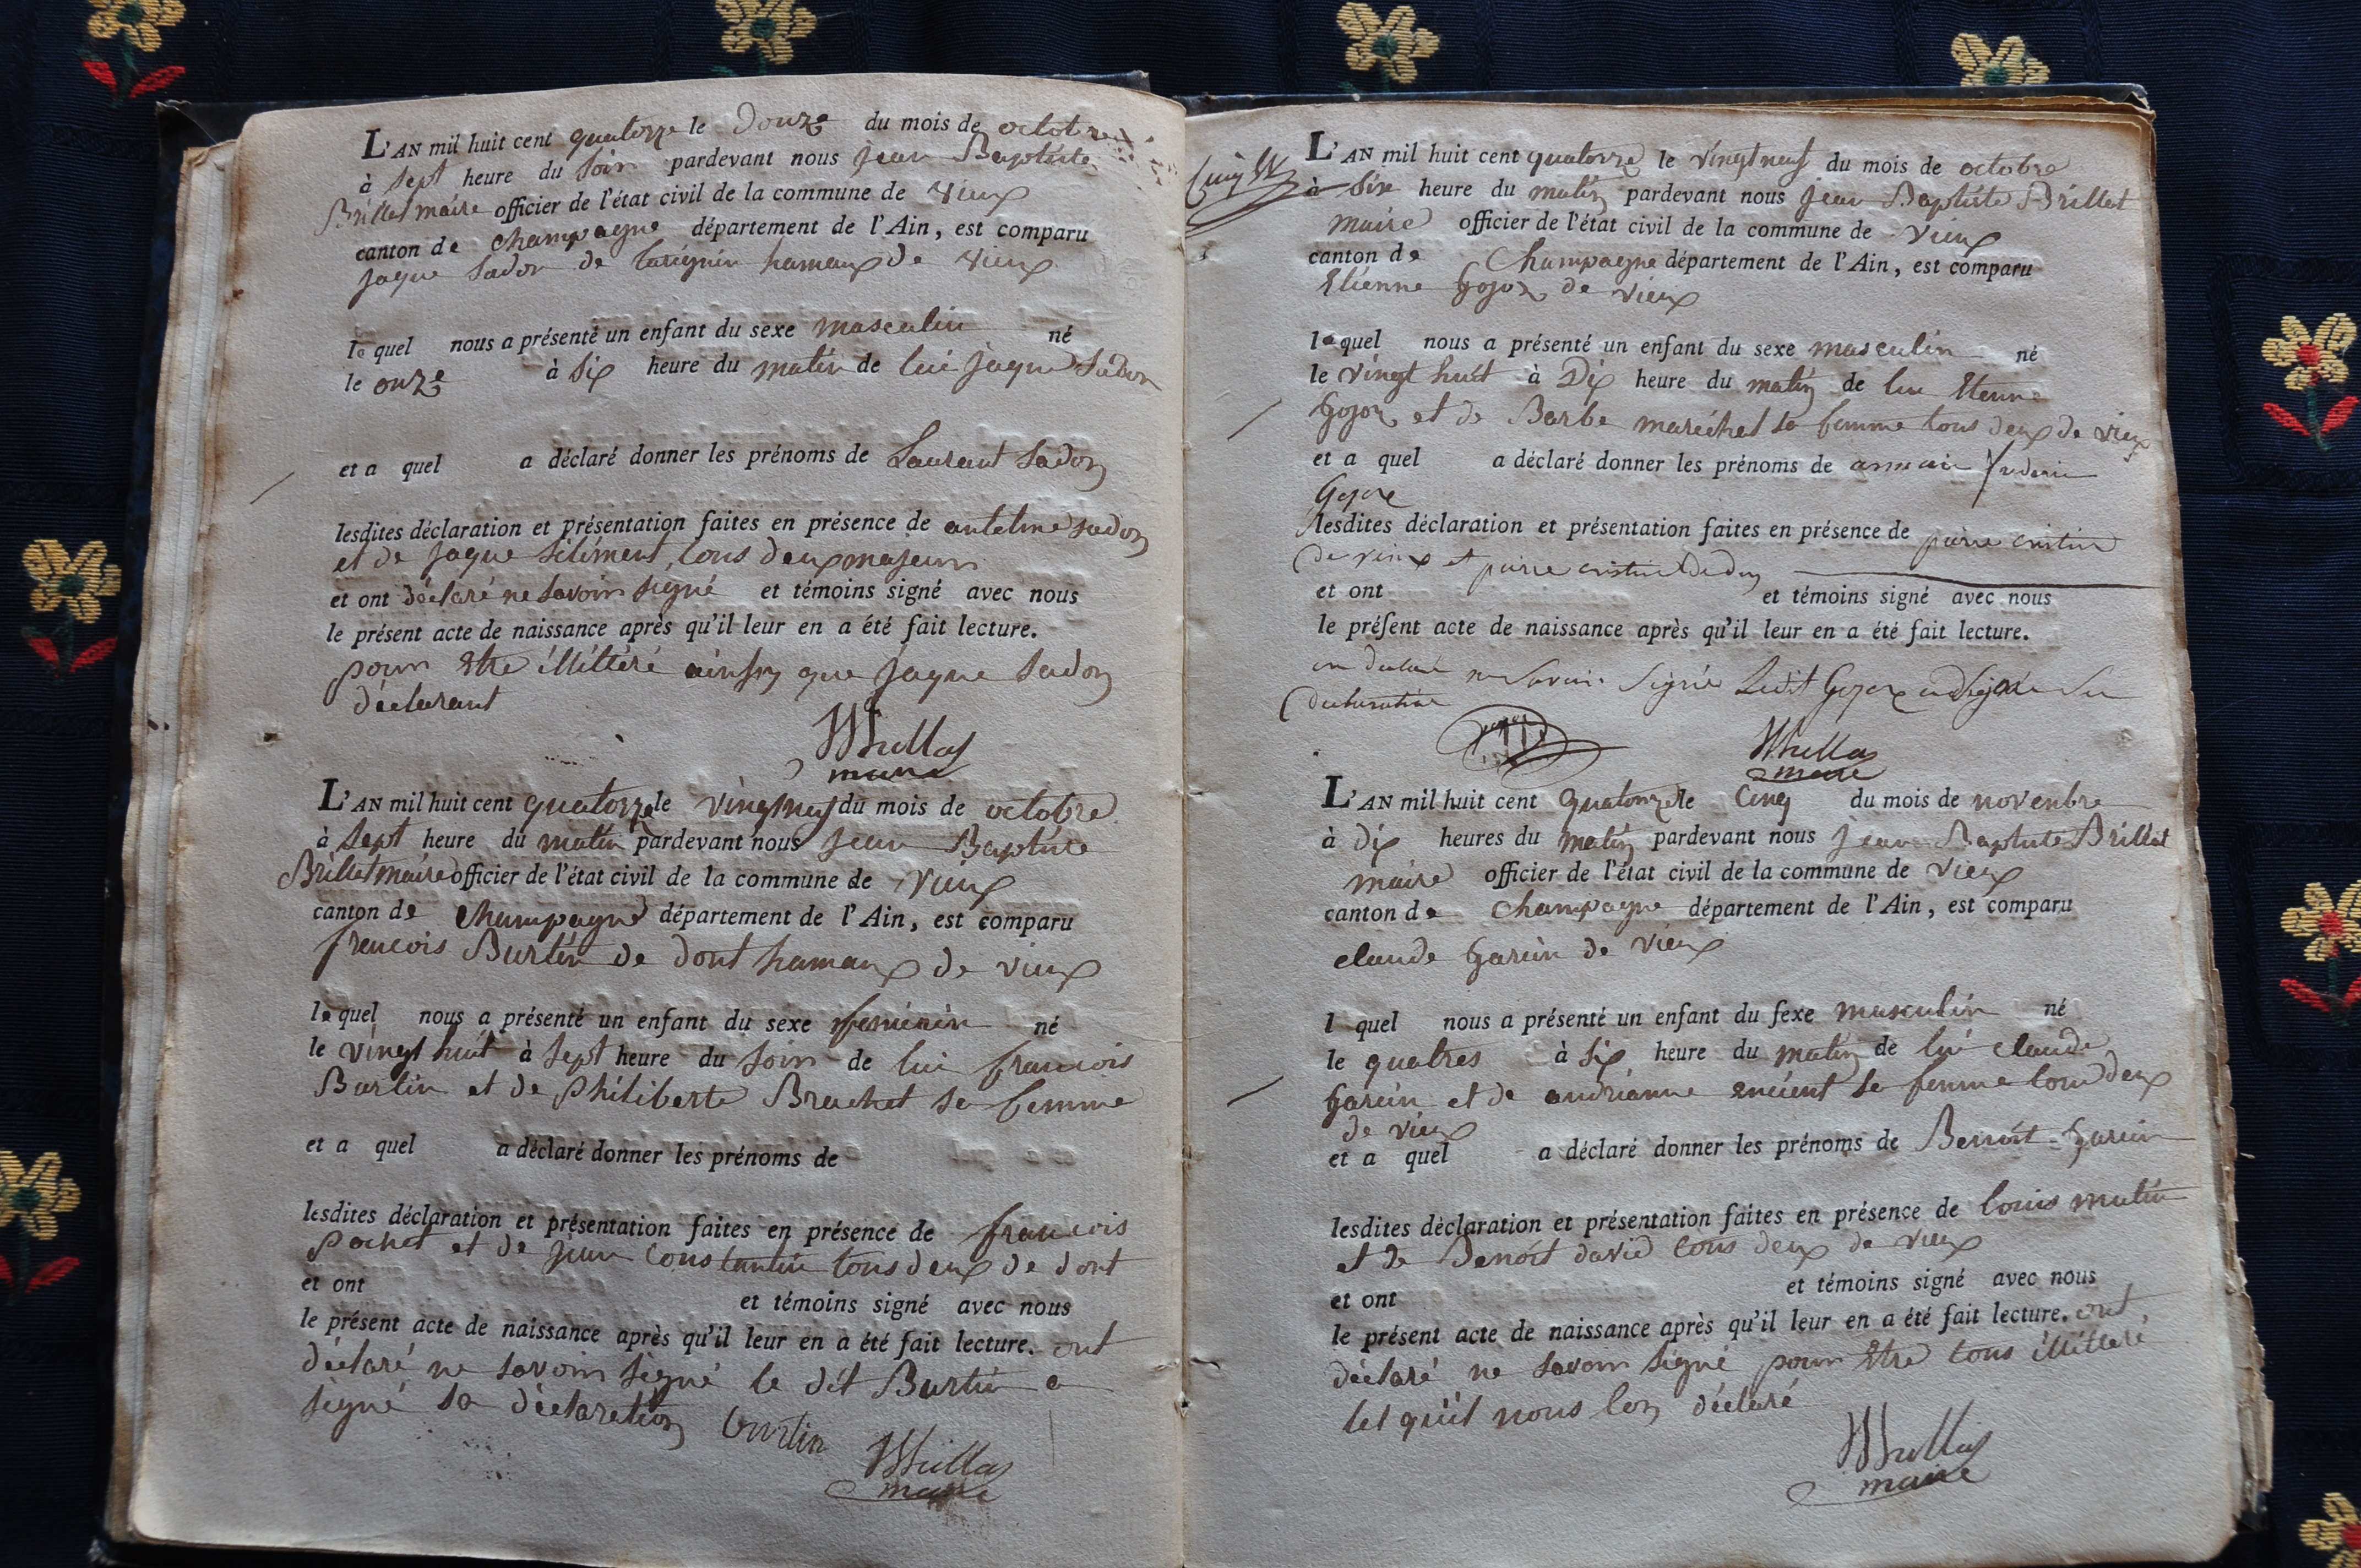 L'AN mil huit cent quatorze le Douze du mois de octobre
à sept heure du soir pardevant nous jean Baptiste
Brillat maire officier de l'état civil de la commune de vieux
canton de champagne département de l'Ain, est comparu
jaque sadon de hameaux de vieux
le quel nous a présenté un enfant du sexe masculin né
le onze à six heure du matin de lui jaque sadon
et a quel a déclaré donner les prénoms de Laurant sadon
lesdites déclaration et présentation faites en présence de antelme sadon
et de jaque tous deux majeurs
et ont déclaré ne savoir signé et témoins signé avec nous
le présent acte de naissance après qu'il leur en a été fait lecture.
pour Etre illitéré ainsy que jaque sadon
déclarant
maire
L'AN mil huit cent quatorze le vingt neuf du mois de octobre
à sept heure du matin pardevant nous jean Baptiste
Brillat maire officier de l'état civil de la commune de vieux
canton de champagne département de l'Ain, est comparu
francois Burtin de dont hamaux de vieux
le quel nous a présenté un enfant du sexe feminin né
le vingt huit à sept heure du soir de lui francois
Burtin et de philiberte Brachet sa femme
et a quel a déclaré donner les prénoms de
lesdites déclaration et présentation faites en présence de francois
pochet et de jean Constantin tous deux de dont
et ont et témoins signé avec nous
le présent acte de naissance après qu'il leur en a été fait lecture. ont
déclaré ne savoir signé le dit Burtin a
signé sa déclaration burtin
maire
L'AN mil huit cent quatorze le vingt neuf du mois de octobre
à sixe heure du matin pardevant nous jean Baptiste Brillat
maire officier de l'état civil de la commune de vieux
canton de Champagne département de l'Ain, est comparu
Etienne gojoz de vieux
le quel nous a présenté un enfant du sexe masculin né
le vingt huit à Dix heure du matin de lui Etienne
gojoz et de Barbe maréchal sa femme tous deux de vieux
et a quel a déclaré donner les prénoms de
lesdites déclaration et présentation faites en présence de
de vieux et
et ont et témoins signé avec nous
le préſent acte de naissance après qu'il leur en a été fait lecture.
on déclaré ne savoir signé Ledit
déclaration
maire
L'AN mil huit cent quatorze le Cinq du mois de novenbre
à dix heures du matin pardevant nous jean Baptiste Brillat
maire officier de l'état civil de la commune de vieux
canton de Champagne département de l'Ain, est comparu
claude garin de vieux
l quel nous a présenté un enfant du ſexe masculin né
le quatres à six heure du matin de lui claude
garin et de andrianne sa femme tous deux
de vieux
et a quel a déclaré donner les prénoms de Benoit garin
lesdites déclaration et présentation faites en présence de louis
et de Benoit david tous deux de vieux
et ont et témoins signé avec nous
le présent acte de naissance après qu'il leur en a été fait lecture. ont
déclaré ne savoir signé pour Etre tous illitéré
tel qu'il nous lon déclaré
maire